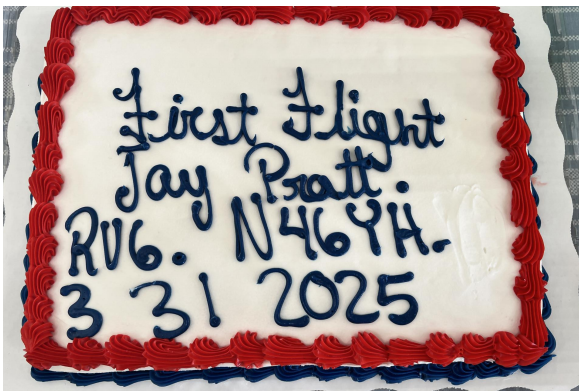 First Flight
Jay Pratt.
RV6. N46YH.
3 31 2025